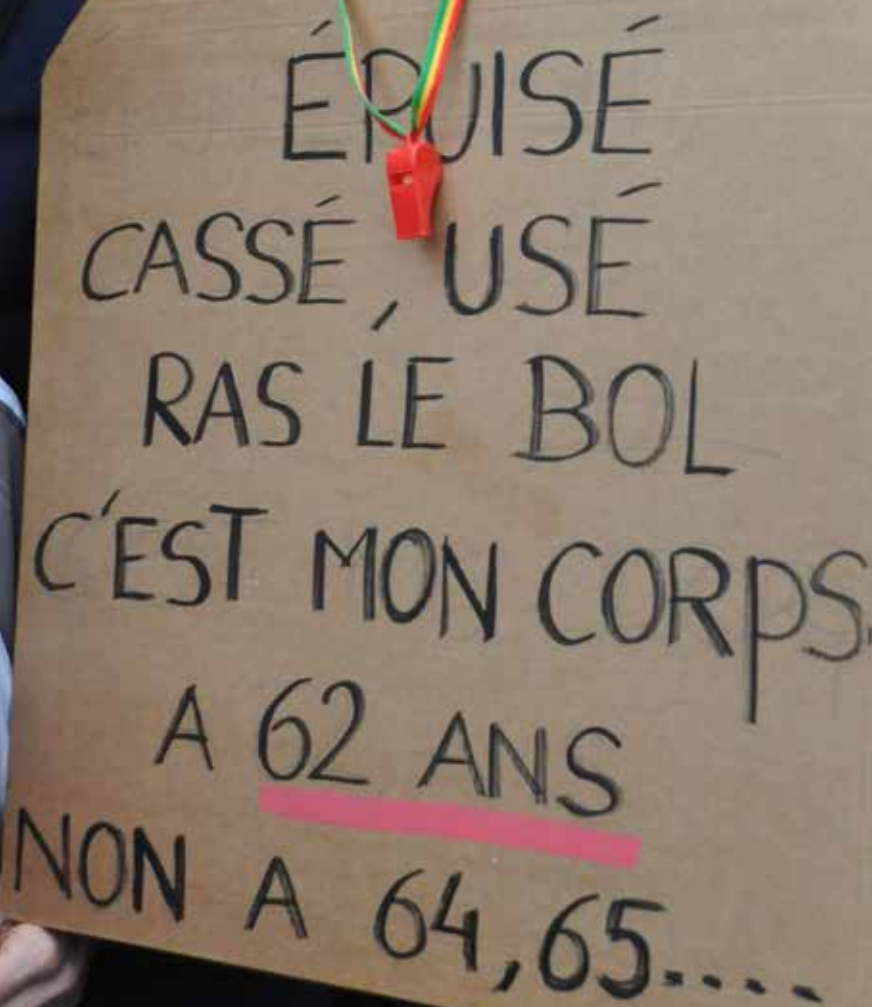 ÉPUISÉ
CASSÉ, USÉ
RAS LE BOL
C'EST MON CORPS.
A 62 ANS
NON A 64,65.....